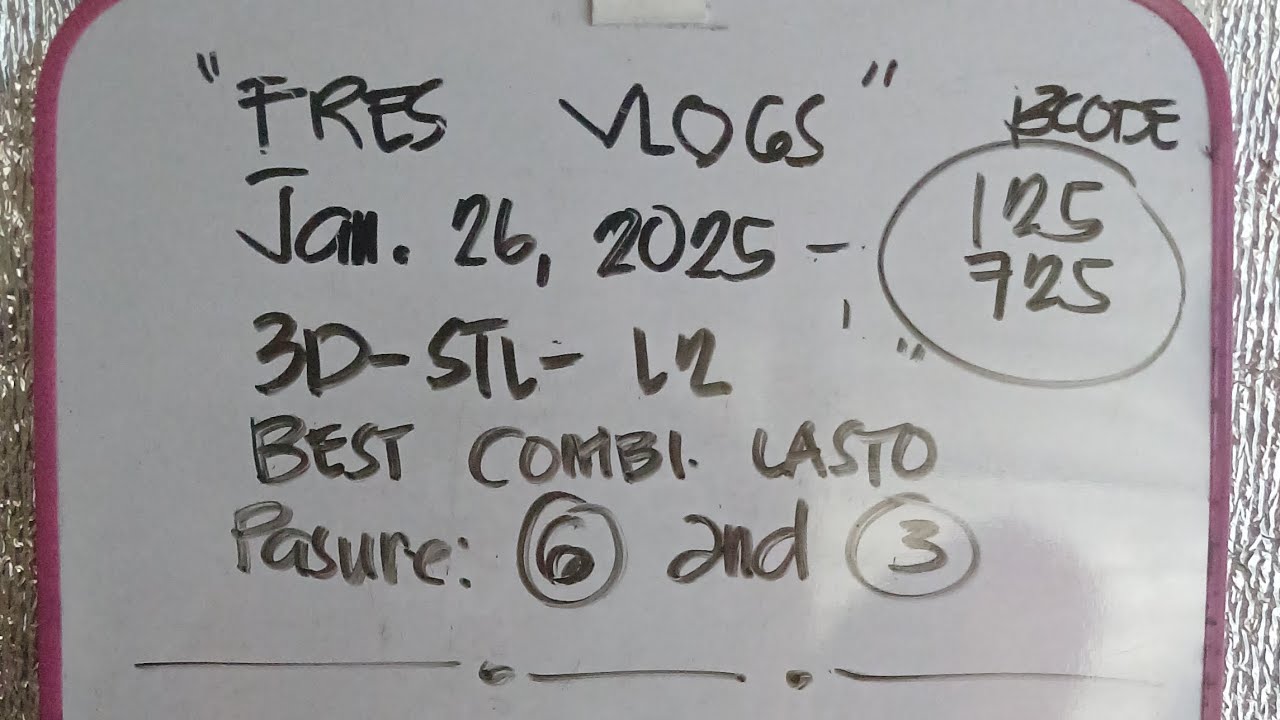 "FRES VLOGS"
BCODE
Jan. 26, 2025 -
125
725
3D-STL- L2
BEST COMBI. LASTO
Pasure: 6 and 3